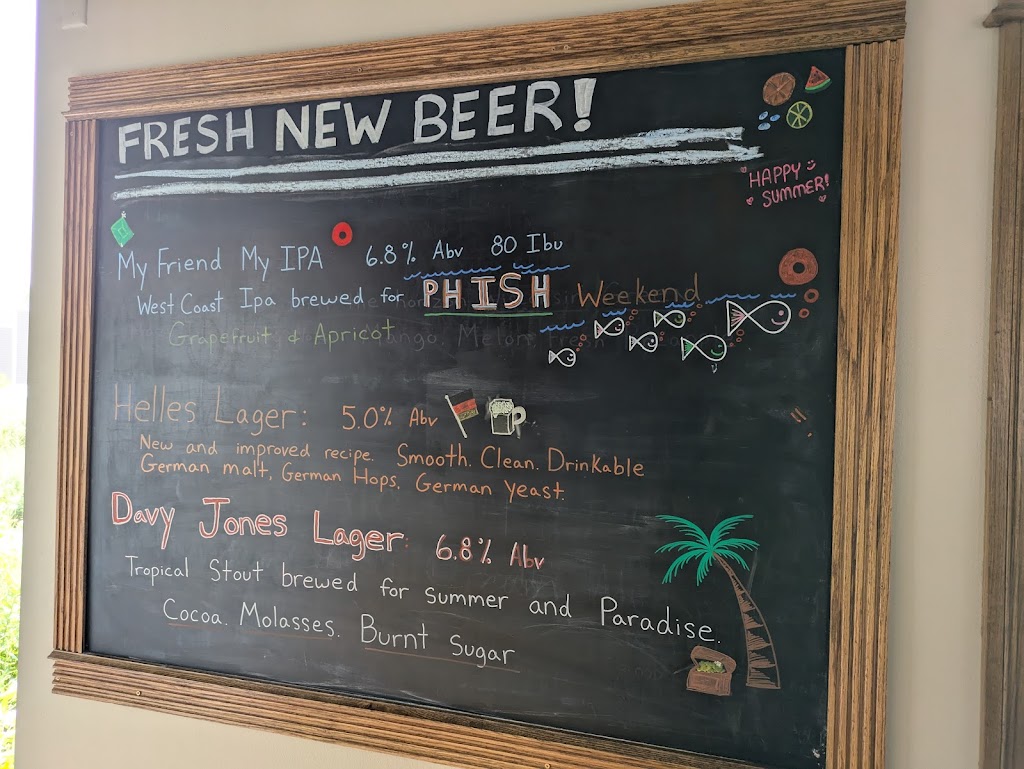 FRESH NEW BEER!
HAPPY
SUMMER!
My Friend My IPA 6.8% Abv 80 Ibu
West Coast Ipa brewed for PHISH Weekend
Grapefruit & Apricot
Helles Lager: 5.0% Abv
New and improved recipe. Smooth. Clean. Drinkable
German malt, German Hops, German Yeast.
Davy Jones Lager: 6.8% Abv
Tropical Stout brewed for summer and Paradise.
Cocoa. Molasses. Burnt Sugar